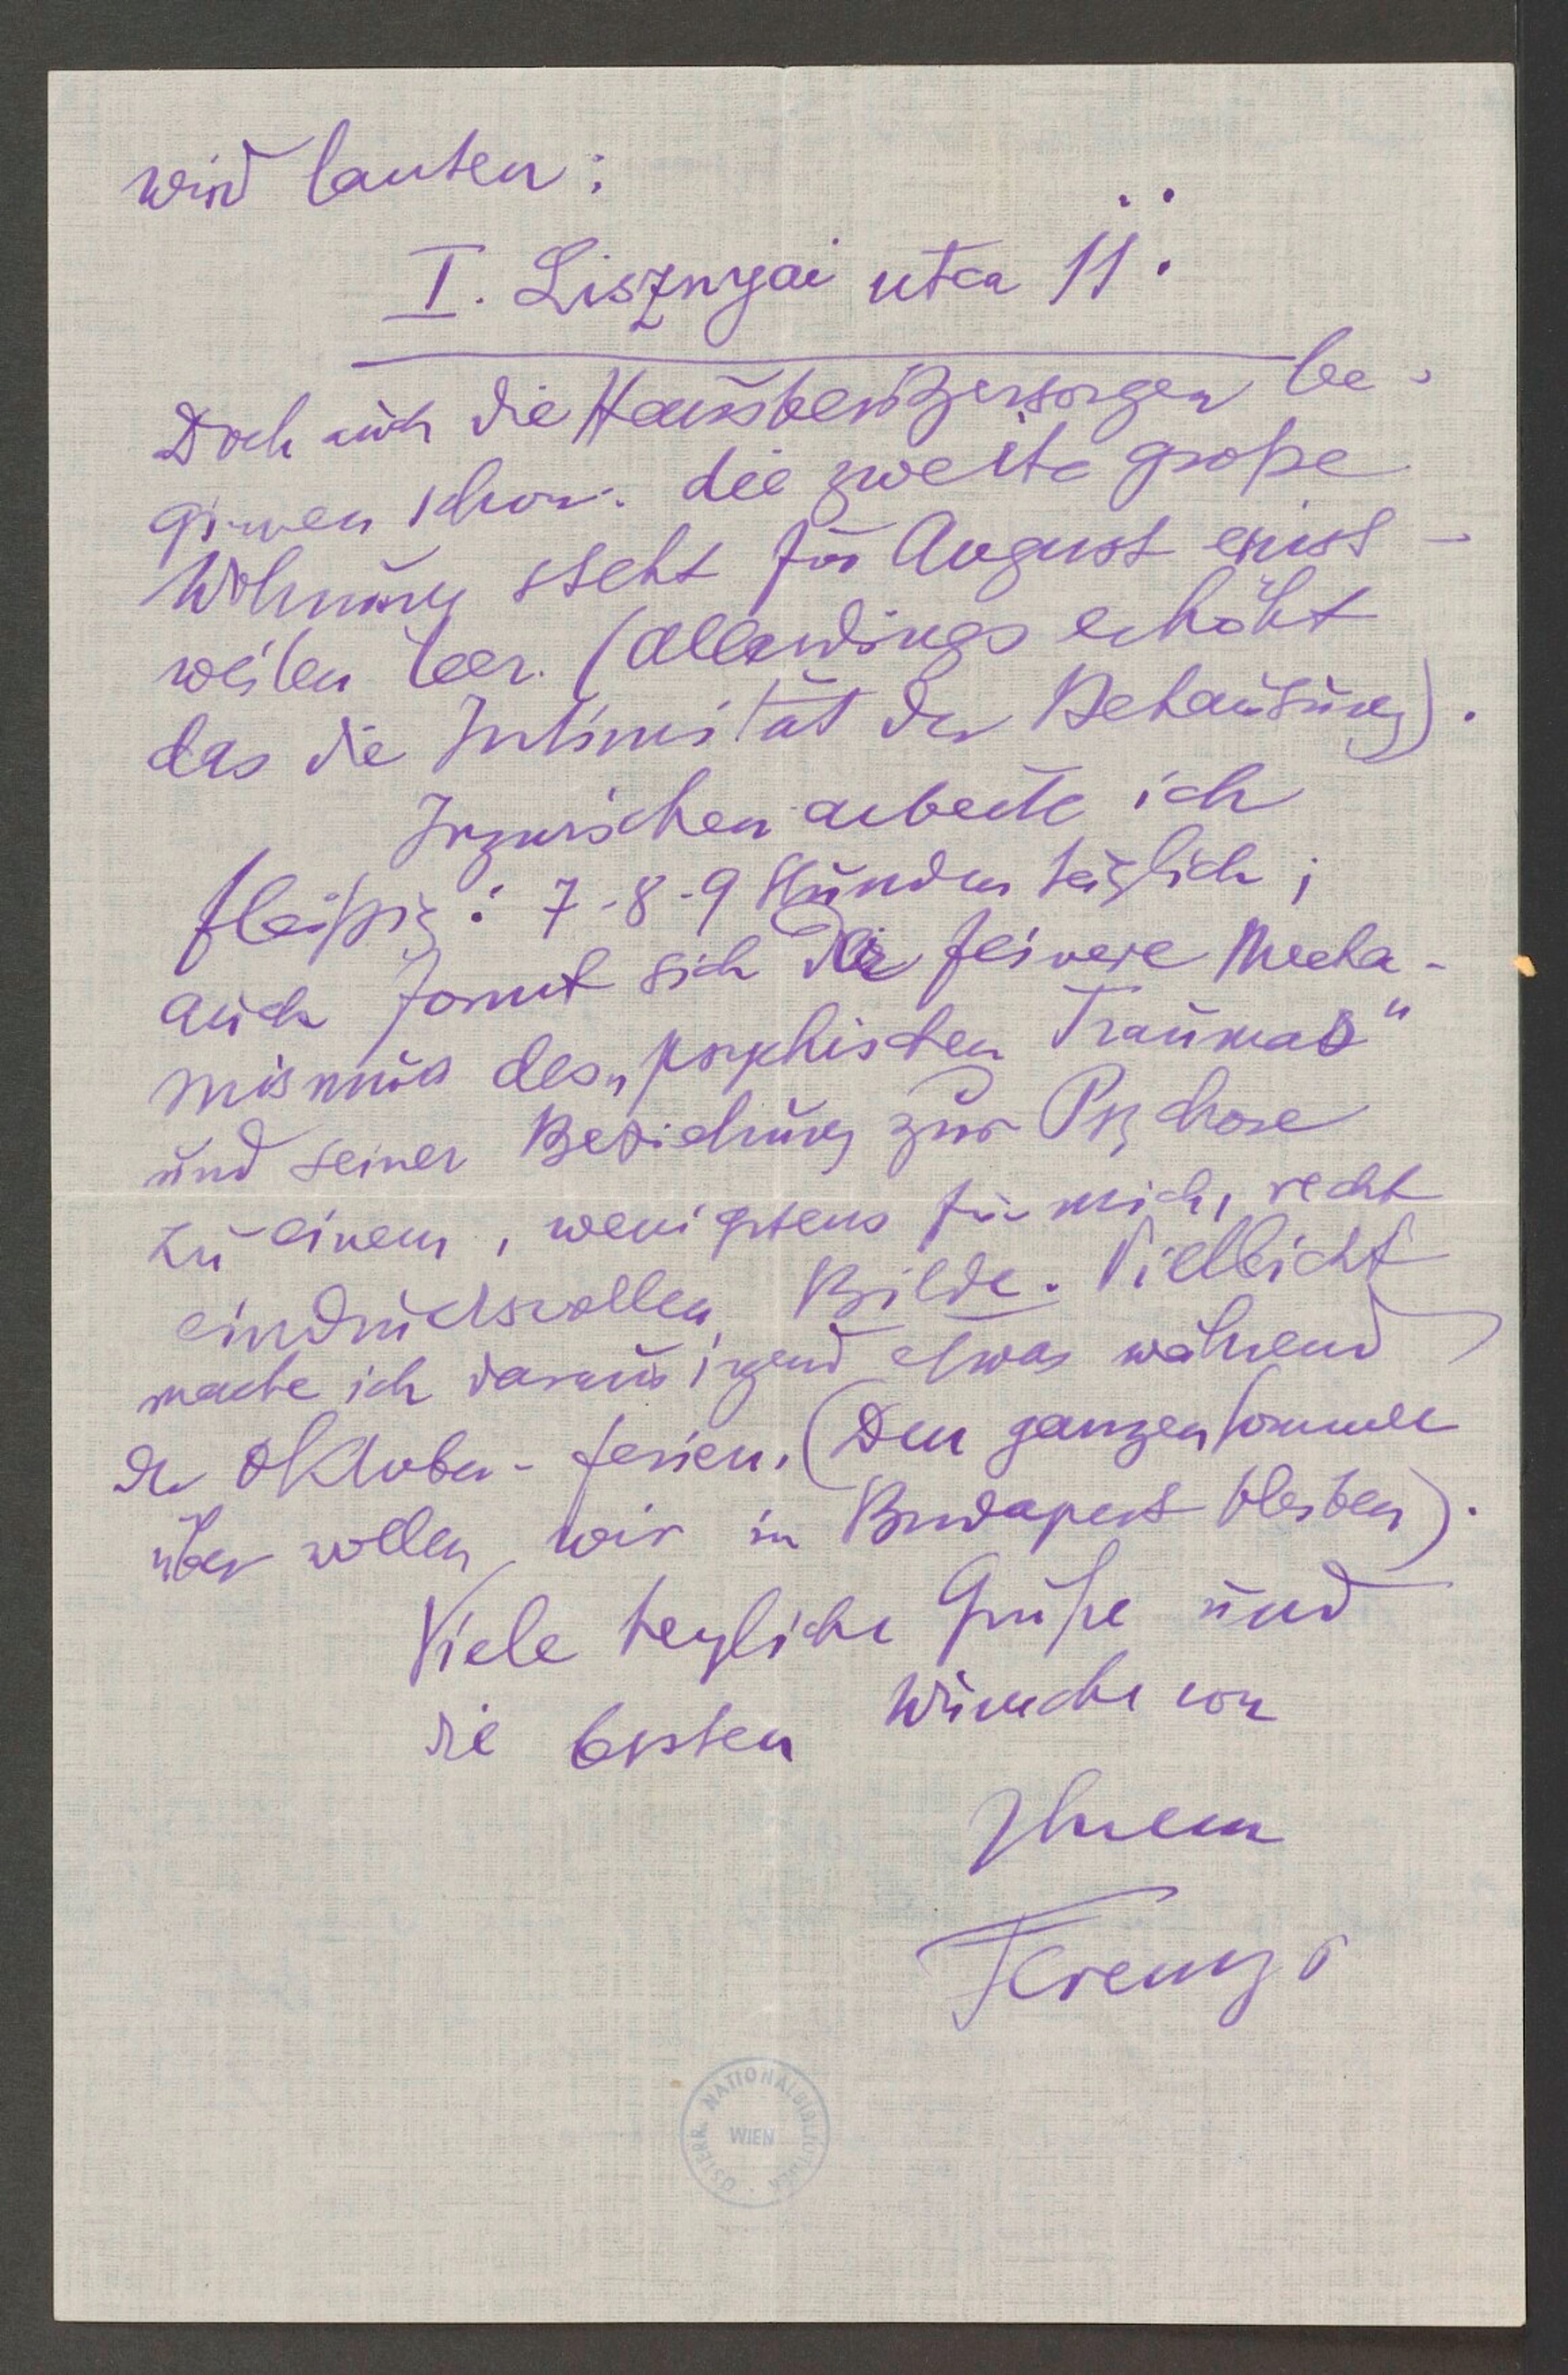 wird lauten:
I. Lisznyai utca 11.
Doch auch die Hausbesitzersorgen be-
ginnen schon. die zweite große
Wohnung steht für August einst-
weilen leer. (Allerdings erhöht
das die Intimität der Behausung).
Inzwischen arbeite ich
fleißig: 7-8-9 Stunden täglich;
auch formt sich der feinere Mecha-
nismus des „psychischen Traumas"
und seiner Beziehung zur Psychose
zu einem, wenigstens für mich, recht
eindrucksvollen Bilde. Vielleicht
mache ich daraus irgend etwas während
der Oktober-ferien. (Den ganzen Sommer
über wollen wir in Budapest bleiben).
Viele herzliche Grüße und
die besten Wünsche von
Ihrem
Ferenczi
ÖSTERR. NATIONALBIBLIOTHEK
WIEN